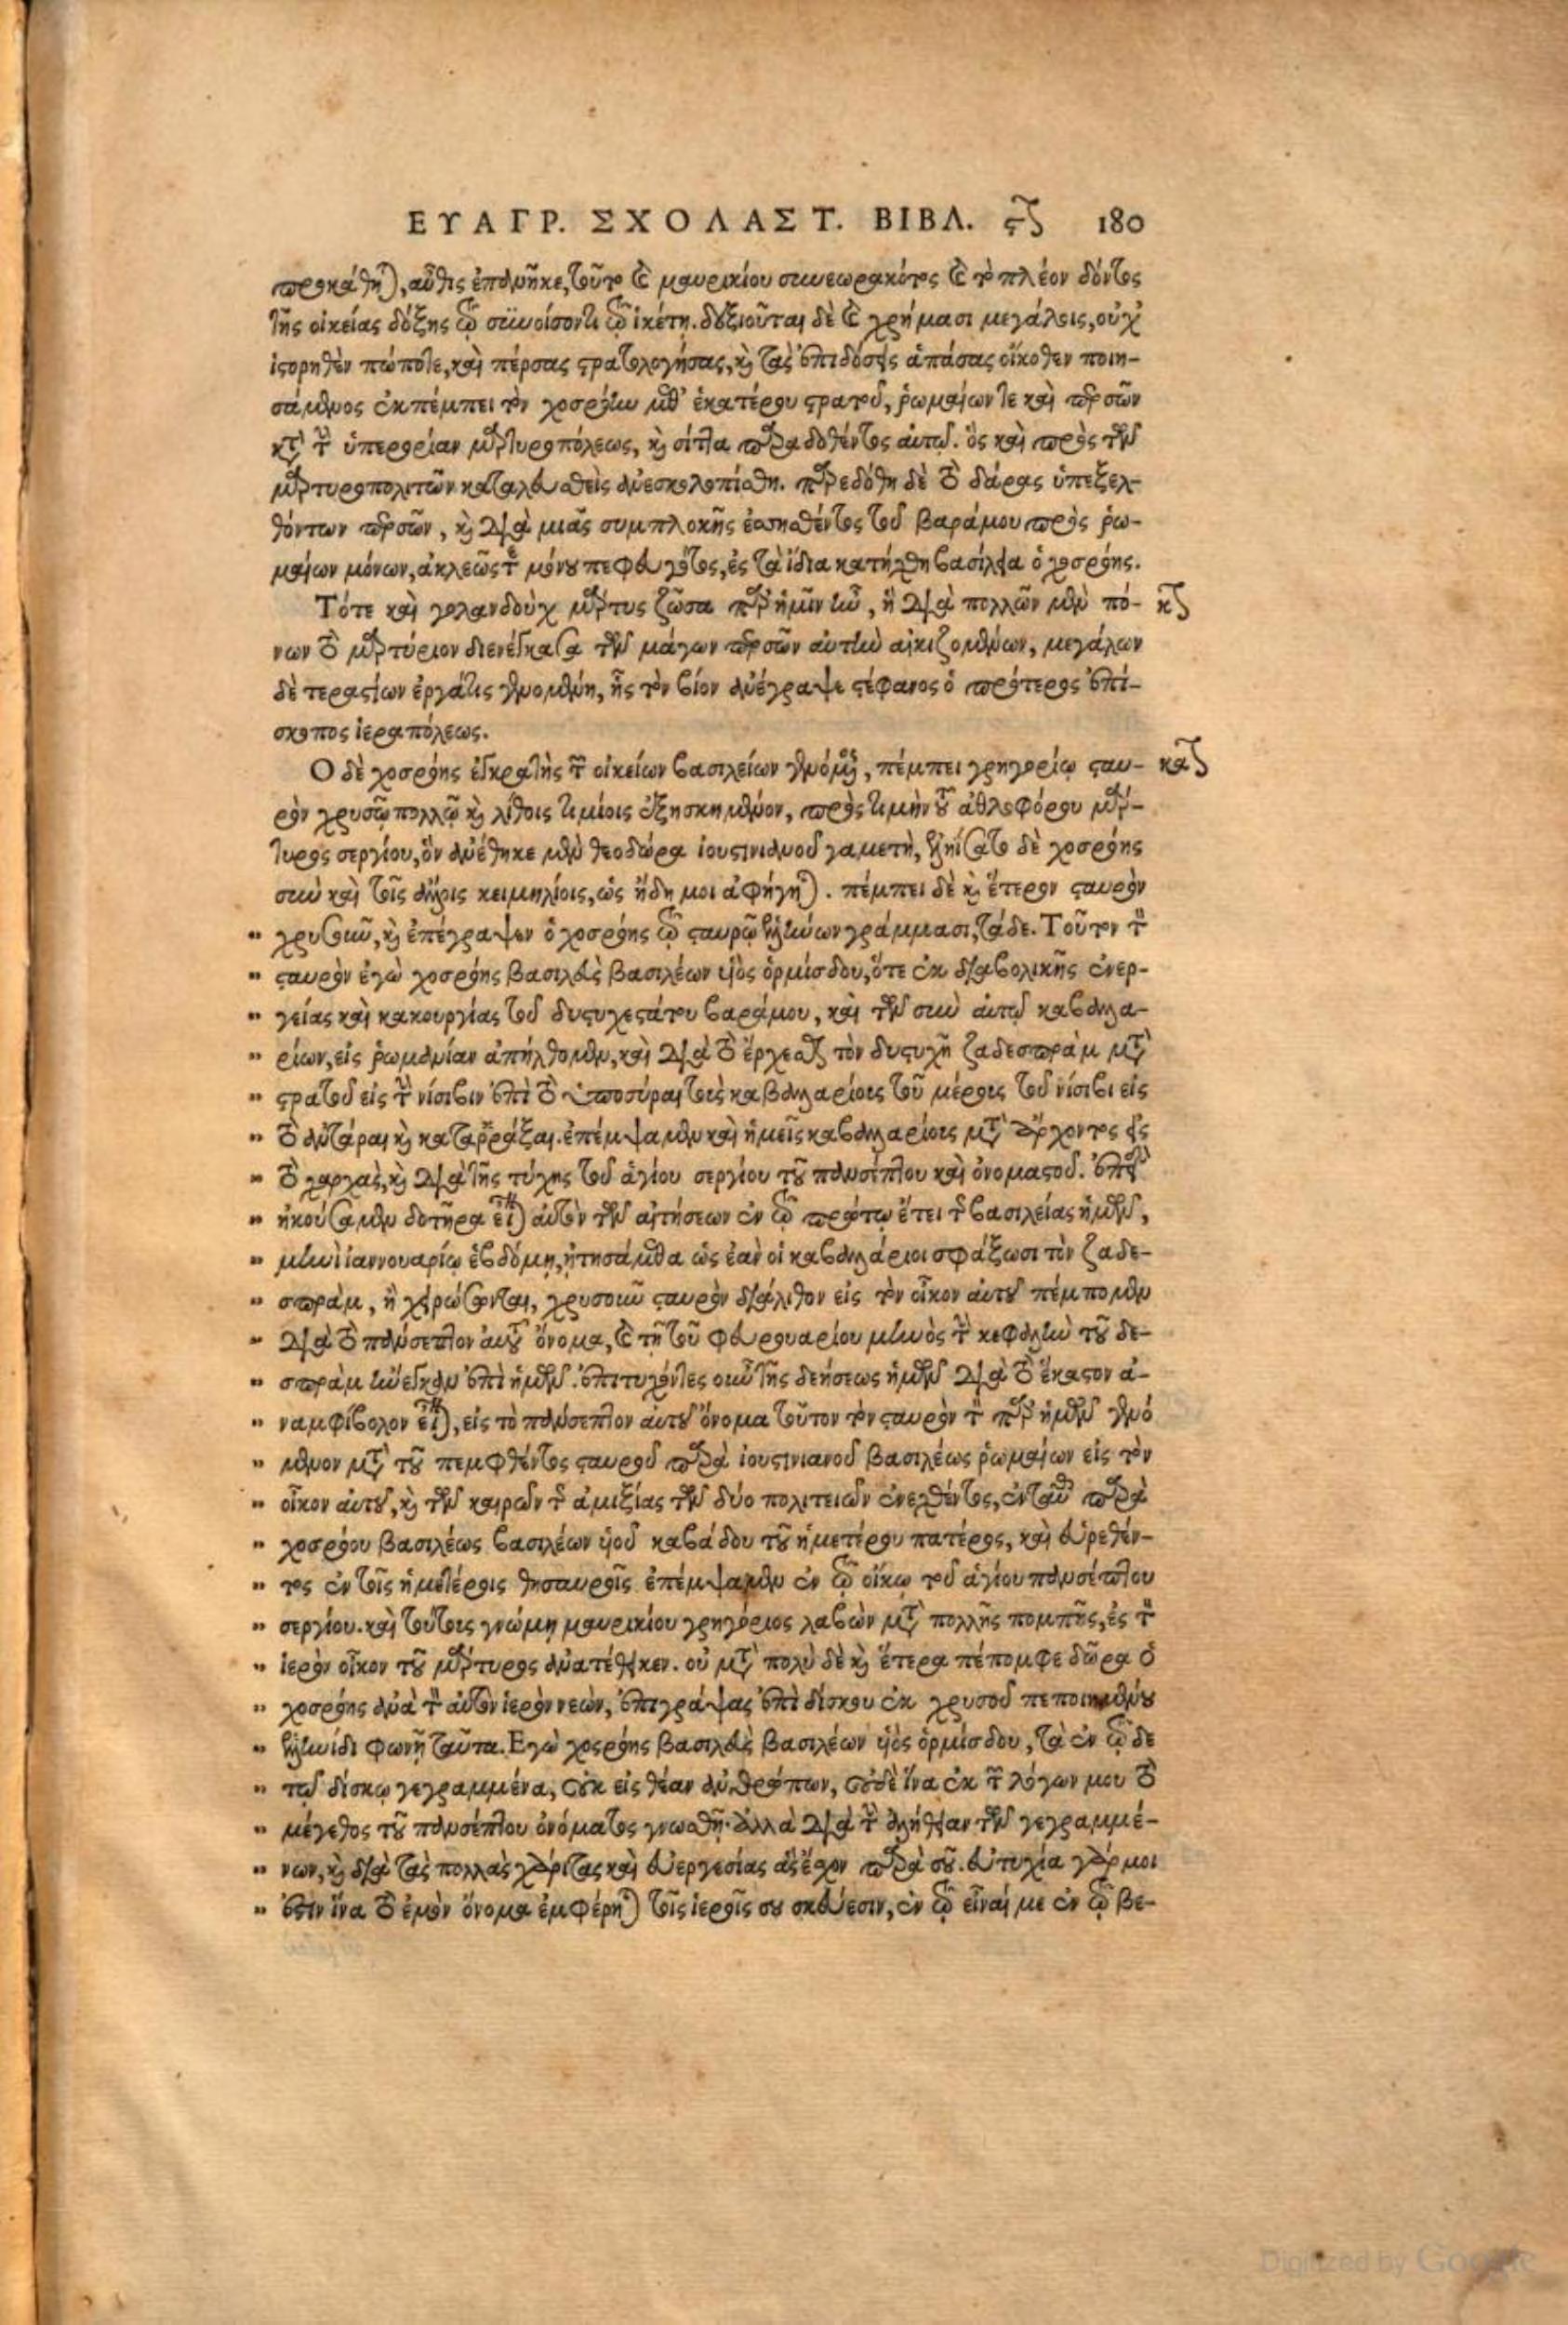 ΕΥΑΓΡ. ΣΧΟΛΑΣΤ. ΒΙΒΛ. ϛ 180
προκάθηται), αὖθις ἐπανῆκε, τοῦτο καὶ μαυρικίου συνεωρακότος καὶ τὸ πλέον δόντος
τῆς οἰκείας δόξης τῷ συνοίσοντι τῷ ἱκέτῃ. δεξιοῦται δὲ καὶ χρήμασι μεγάλοις, οὐχ
ἱστορηθὲν πώποτε, καὶ πέρσας στρατολογήσας, καὶ τὰς ἐπιδόσεις ἁπάσας οἴκοθεν ποιη-
σάμενος ἐκπέμπει τὸν χοσρόην μεθ' ἑκατέρου στρατοῦ, ῥωμαίων τε καὶ περσῶν
κατὰ τὴν ὑπερορίαν μαρτυροπόλεως, καὶ σίττα παραδοθέντος αὐτῷ. ὃς καὶ πρὸς τῶν
μαρτυροπολιτῶν καταλευσθεὶς ἀνεσκολοπίσθη. παρεδόθη δὲ τὸ δάρας ὑπεξελ-
θόντων περσῶν, καὶ διὰ μιᾶς συμπλοκῆς ἑσσηθέντος τοῦ βαράμου πρὸς ῥω-
μαίων μόνων, ἀκλεῶς τε μόνου πεφευγότος, ἐς τὰ ἴδια κατήχθη βασίλεια ὁ χοσρόης.
Τότε καὶ γολανδοὺχ μάρτυς ζῶσα παρ' ἡμῖν ἦν, ἣ διὰ πολλῶν μὲν πό- κ
νων τὸ μαρτύριον διενέγκασα τῶν μάγων περσῶν αὐτὴν αἰκιζομένων, μεγάλων
δὲ τεραστίων ἐργάτις γενομένη, ἧς τὸν βίον ἀνέγραψε στέφανος ὁ πρότερος ἐπί-
σκοπος ἱεραπόλεως.
Ο δὲ χοσρόης ἐγκρατὴς τῶν οἰκείων βασιλείων γενόμενος, πέμπει γρηγορίῳ σταυ- κα
ρὸν χρυσῷ πολλῷ καὶ λίθοις τιμίοις ἐξησκημένον, πρὸς τιμὴν τοῦ ἀθλοφόρου μάρ-
τυρος σεργίου, ὃν ἀνέθηκε μὲν θεοδώρα ἰουστινιανοῦ γαμετὴ, ἐληΐσατο δὲ χοσρόης
σὺν καὶ τοῖς ἄλλοις κειμηλίοις, ὡς ἤδη μοι ἀφήγηται). πέμπει δὲ καὶ ἕτερον σταυρὸν
" χρυσοῦν, καὶ ἐπέγραψεν ὁ χοσρόης τῷ σταυρῷ ἑλλήνων γράμμασι, τάδε. Τοῦτον τὸν
" σταυρὸν ἐγὼ χοσρόης βασιλεὺς βασιλέων υἱὸς ὁρμίσδου, ὅτε ἐκ διαβολικῆς ἐνερ-
" γείας καὶ κακουργίας τοῦ δυστυχεστάτου βαράμου, καὶ τῶν σὺν αὐτῷ καβαλλα-
" ρίων, εἰς ῥωμανίαν ἀπήλθομεν, καὶ διὰ τὸ ἔρχεσθαι τὸν δυστυχῆ ζαδεσπρὰμ μετὰ
" στρατοῦ εἰς τὴν νίσιβιν ἐπὶ τὸ ὑποσύραι τοὺς καβαλλαρίους τοῦ μέρους τοῦ νίσιβι εἰς
" τὸ ἀντάραι καὶ καταρράξαι. ἐπέμψαμεν καὶ ἡμεῖς καβαλλαρίους μετὰ ἄρχοντος εἰς
" τὸ χαρχὰς, καὶ διὰ τῆς τύχης τοῦ ἁγίου σεργίου τοῦ πανσέπτου καὶ ὀνομαστοῦ. ἐπειδὴ
" ἠκούσαμεν δοτῆρα εἶναι) αὐτὸν τῶν αἰτήσεων ἐν τῷ πρώτῳ ἔτει τῆς βασιλείας ἡμῶν,
" μηνὶ ἰαννουαρίῳ ἑβδόμῃ, ᾐτησάμεθα ὡς ἐὰν οἱ καβαλλάριοι σφάξωσι τὸν ζαδε-
" σπρὰμ, ἢ χειρώσονται, χρυσοῦν σταυρὸν διάλιθον εἰς τὸν οἶκον αὐτοῦ πέμπομεν
" διὰ τὸ πάνσεπτον αὐτοῦ ὄνομα, καὶ τῇ τοῦ φευρουαρίου μηνὸς τὴν κεφαλὴν τοῦ δε-
" σπρὰμ ἤνεγκαν ἐπὶ ἡμῶν. ἐπιτυχόντες οὖν τῆς δεήσεως ἡμῶν διὰ τὸ ἕκαστον ἀ-
" ναμφίβολον εἶναι), εἰς τὸ πάνσεπτον αὐτοῦ ὄνομα τοῦτον τὸν σταυρὸν τὸν παρ' ἡμῶν γενό
" μενον μετὰ τοῦ πεμφθέντος σταυροῦ παρὰ ἰουστινιανοῦ βασιλέως ῥωμαίων εἰς τὸν
" οἶκον αὐτοῦ, καὶ τῶν καιρῶν τῆς ἀμιξίας τῶν δύο πολιτειῶν ἐνεχθέντος, ἐνταῦθα παρὰ
" χοσρόου βασιλέως βασιλέων υἱοῦ καβάδου τοῦ ἡμετέρου πατέρος, καὶ εὑρεθέν-
" τος ἐν τοῖς ἡμετέροις θησαυροῖς ἐπέμψαμεν ἐν τῷ οἴκῳ τοῦ ἁγίου πανσέπτου
" σεργίου. καὶ τούτους γνώμῃ μαυρικίου γρηγόριος λαβὼν μετὰ πολλῆς πομπῆς, ἐς τὸν
" ἱερὸν οἶκον τοῦ μάρτυρος ἀνατέθεικεν. οὐ μετὰ πολὺ δὲ καὶ ἕτερα πέπομφε δῶρα ὁ
" χοσρόης ἀνὰ τὸν αὐτὸν ἱερὸν νεὼν, ἐπιγράψας ἐπὶ δίσκου ἐκ χρυσοῦ πεποιημένου
" ἑλληνίδι φωνῇ ταῦτα. Εγὼ χοσρόης βασιλεὺς βασιλέων υἱὸς ὁρμίσδου, τὰ ἐν τῷδε
" τῷ δίσκῳ γεγραμμένα, οὐκ εἰς θέαν ἀνθρώπων, οὐδὲ ἵνα ἐκ τῶν λόγων μου τὸ
" μέγεθος τοῦ πανσέπτου ὀνόματος γνωσθῇ. ἀλλὰ διὰ τὴν ἀλήθειαν τῶν γεγραμμέ-
" νων, καὶ διὰ τὰς πολλὰς χάριτας καὶ εὐεργεσίας ἃς ἔσχον παρὰ σοῦ. εὐτυχία γάρ μοι
" ἐστὶν ἵνα τὸ ἐμὸν ὄνομα ἐμφέρηται) τοῖς ἱεροῖς σου σκεύεσιν, ἐν τῷ εἶναί με ἐν τῷ βε-
Digitized by Google